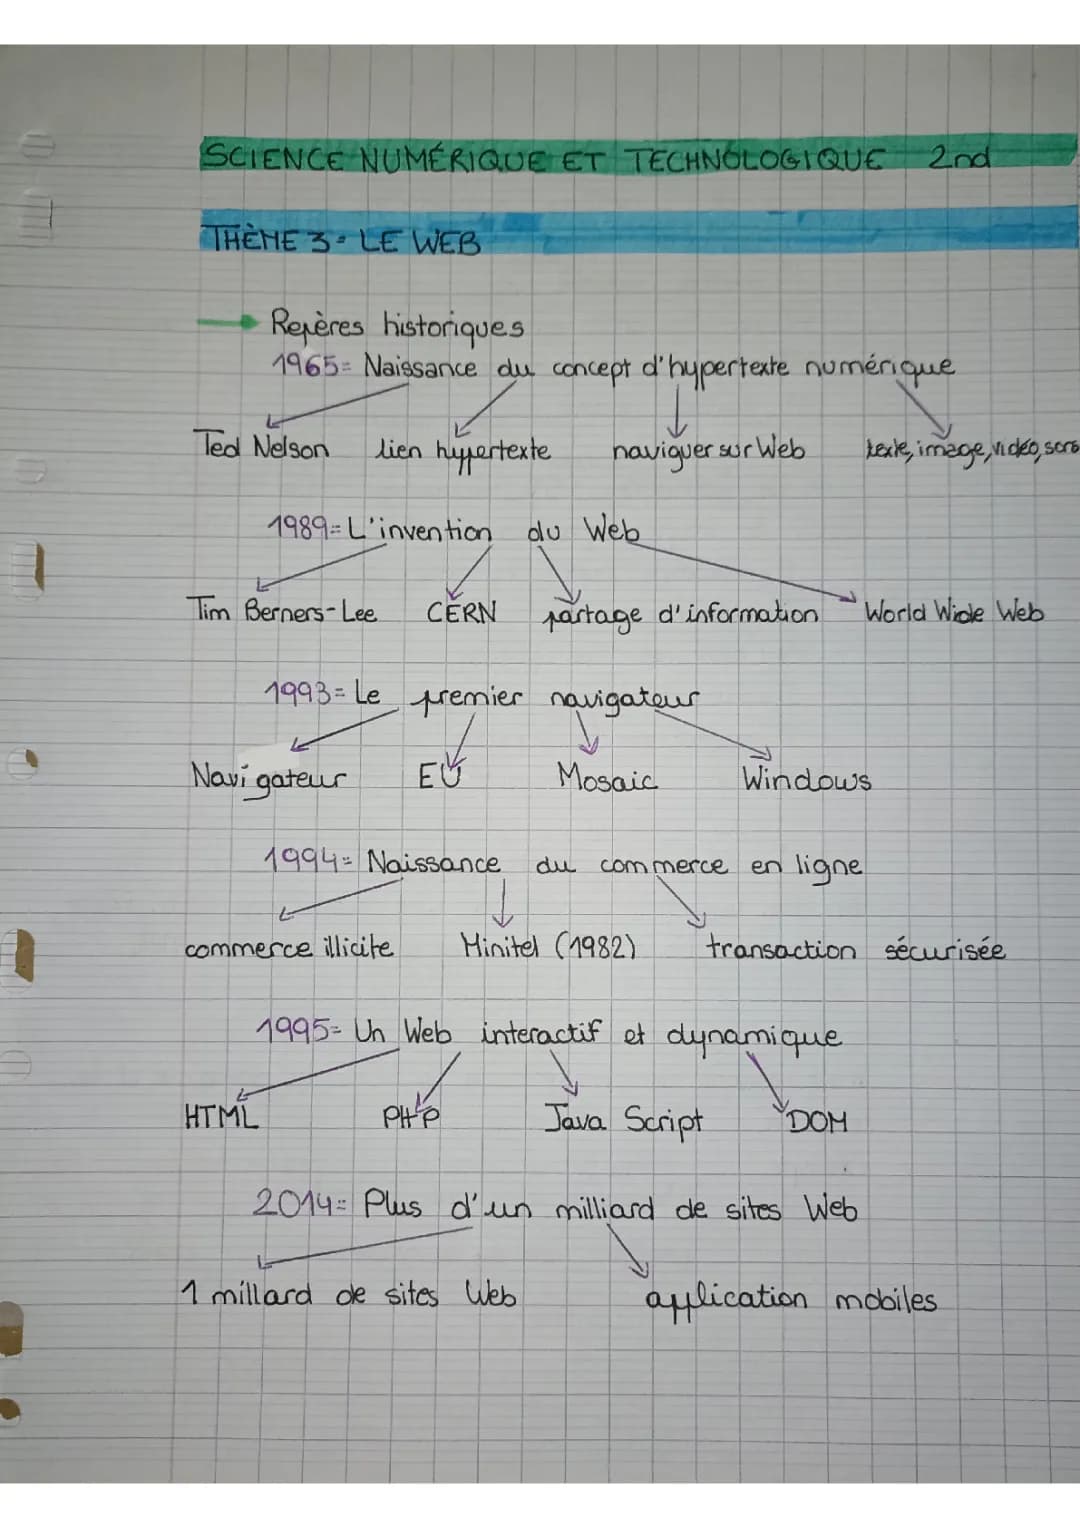 SCIENCE NUMÉRIQUE ET TECHNOLOGIQUE 2nd
THÈME 3 - LE WEB
Repères historiques
1965= Naissance du concept d'hypertexte numérique
Ted Nelson lien hypertexte naviguer sur Web texte, image, vidéo, sons
1989= L'invention du Web
Tim Berners-Lee CERN partage d'information World Wide Web
1993= Le premier navigateur
Navigateur EU Mosaic Windows
1994= Naissance du commerce en ligne
commerce illicite Minitel (1982) transaction sécurisée
1995= Un Web interactif et dynamique
HTML PHP Java Script DOM
2014= Plus d'un milliard de sites Web
1 millard de sites Web application mobiles